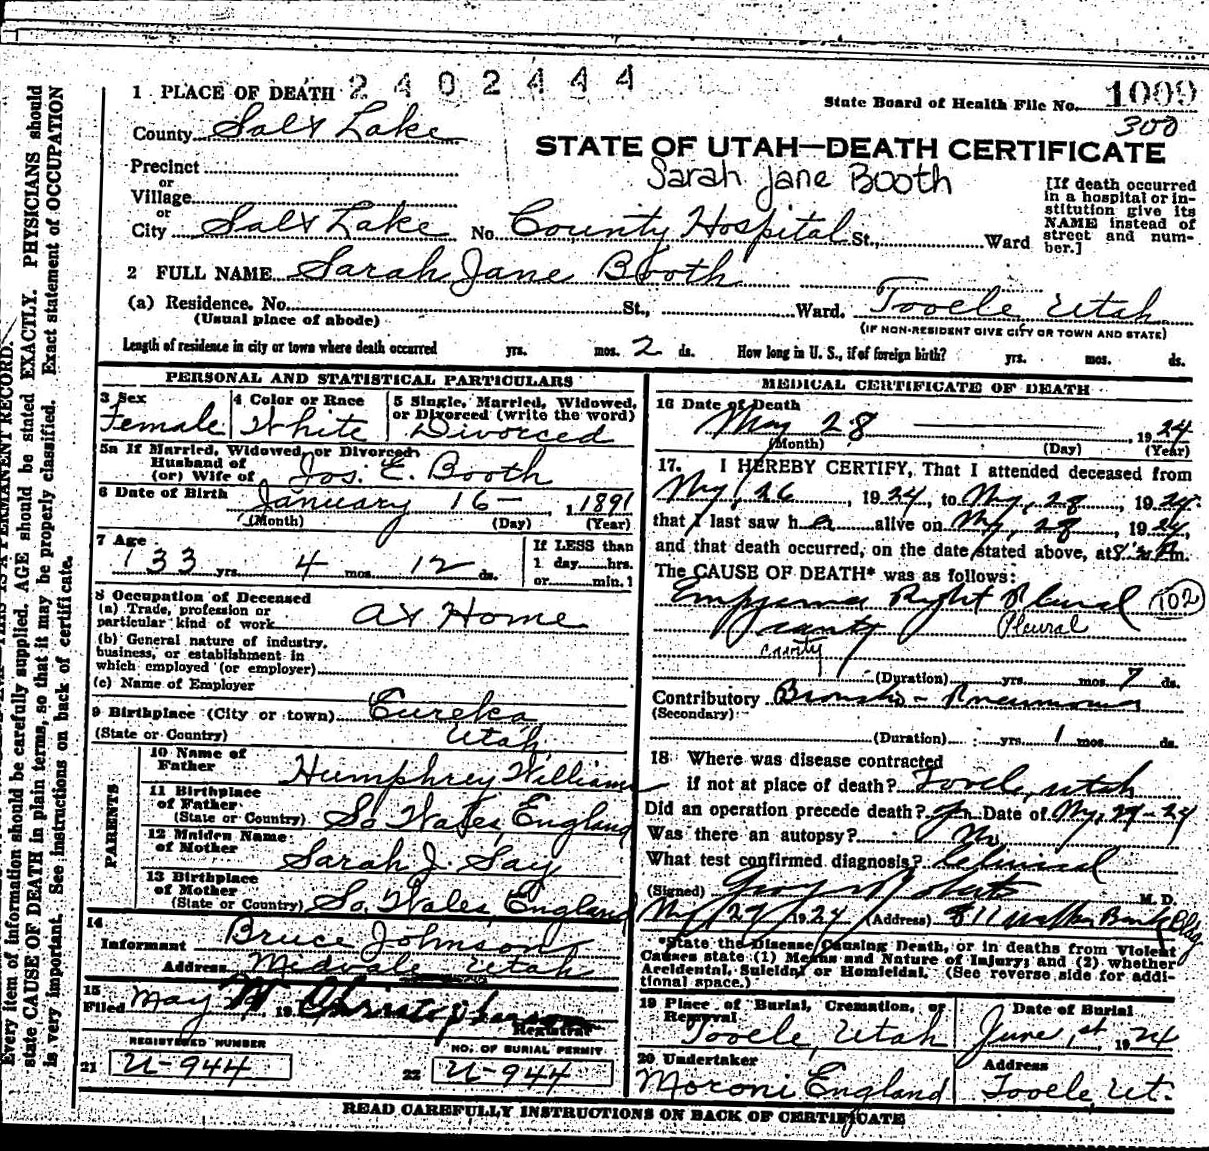 2402444
1 PLACE OF DEATH
State Board of Health File No. 1009
300
County Salt Lake
STATE OF UTAH—DEATH CERTIFICATE
Sarah Jane Booth
Precinct
or
Village
or
City Salt Lake No. County Hospital St., Ward
[If death occurred in a hospital or institution give its NAME instead of street and number.]
2 FULL NAME Sarah Jane Booth
(a) Residence, No. St., Ward. Tooele Utah
(Usual place of abode) (IF NON-RESIDENT GIVE CITY OR TOWN AND STATE)
Length of residence in city or town where death occurred yrs. mos. 2 ds. How long in U. S., if of foreign birth? yrs. mos. ds.
PERSONAL AND STATISTICAL PARTICULARS
3 Sex Female
4 Color or Race White
5 Single, Married, Widowed, or Divorced (write the word) Divorced
5a If Married, Widowed, or Divorced
Husband of
(or) Wife of Jos. E. Booth
6 Date of Birth January 16 — , 1891
(Month) (Day) (Year)
7 Age 33 yrs. 4 mos. 12 ds.
If LESS than
1 day hrs.
or min.
8 Occupation of Deceased
(a) Trade, profession or
particular kind of work at Home
(b) General nature of industry,
business, or establishment in
which employed (or employer)
(c) Name of Employer
9 Birthplace (City or town) Eureka
(State or Country) Utah
PARENTS
10 Name of
Father Humphrey Williams
11 Birthplace
of Father
(State or Country) So. Wales, England
12 Maiden Name
of Mother Sarah J. Say
13 Birthplace
of Mother
(State or Country) So. Wales, England
14
Informant Bruce Johnson
Address Midvale Utah
15
Filed May 19
Registrar
REGISTERED NUMBER
21 U-944
NO. OF BURIAL PERMIT
22 U-944
MEDICAL CERTIFICATE OF DEATH
16 Date of Death
May 28 , 1924
(Month) (Day) (Year)
17. I HEREBY CERTIFY, That I attended deceased from
My, 26, 1924, to My, 28, 1924.
that I last saw her alive on My, 28, 1924,
and that death occurred, on the date stated above, at m.
The CAUSE OF DEATH* was as follows:
Empyema Right Plural 102
cavity Pleural
cavity
(Duration) yrs. mos. 7 ds.
Contributory Broncho-Pneumonia
(Secondary)
(Duration) yrs. 1 mos. ds.
18 Where was disease contracted
if not at place of death? Tooele, Utah
Did an operation precede death? Yes Date of My, 27-24
Was there an autopsy? No
What test confirmed diagnosis? Clinical
(Signed) Roberts M. D.
My, 29, 1924 (Address) 811 Walker Bank Bldg
*State the Disease Causing Death, or in deaths from Violent
Causes state (1) Means and Nature of Injury; and (2) whether
Accidental, Suicidal or Homicidal. (See reverse side for additional space.)
19 Place of Burial, Cremation, or
Removal
Tooele, Utah
Date of Burial
June 1st, 1924
20 Undertaker
Moroni England
Address
Tooele, Ut.
READ CAREFULLY INSTRUCTIONS ON BACK OF CERTIFICATE
Every item of information should be carefully supplied. AGE should be stated EXACTLY. PHYSICIANS should
state CAUSE OF DEATH in plain terms, so that it may be properly classified. Exact statement of OCCUPATION
is very important. See instructions on back of certificate.